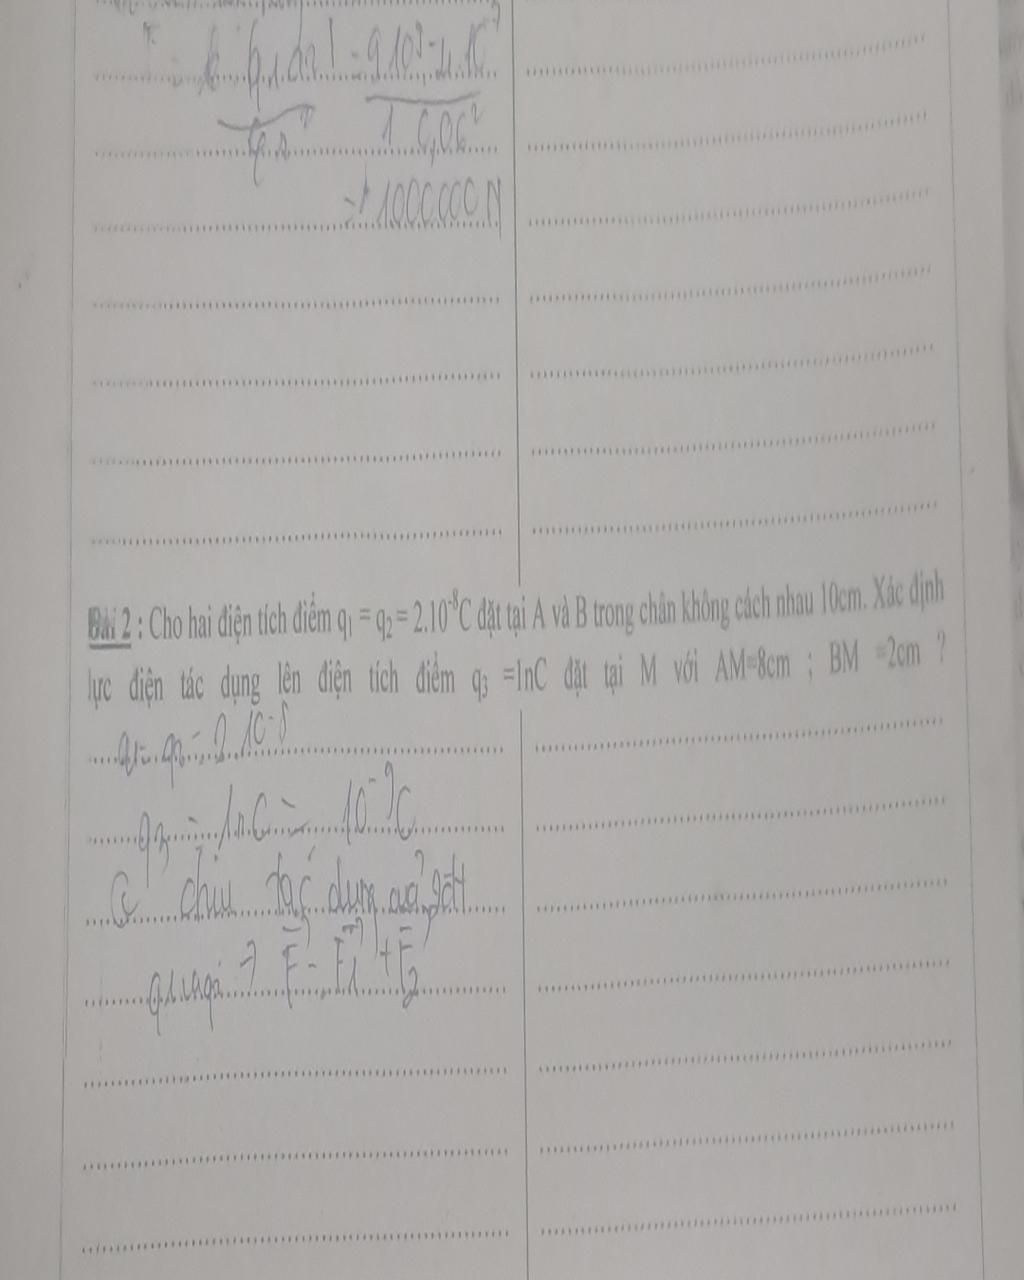 = k |q1.q2| = 9.10⁹.4.10
1.0,06²
= 1000000N
Bài 2 : Cho hai điện tích điểm q₁ = q₂ = 2.10⁻⁸C đặt tại A và B trong chân không cách nhau 10cm. Xác định
lực điện tác dụng lên điện tích điểm q₃ =1nC đặt tại M với AM=8cm ; BM =2cm ?
q1= q2 = 2.10⁻⁸
q3 = 1nC = 10⁻⁹C
chịu tác dụng của
q1 và q2 → F = F1 + F2